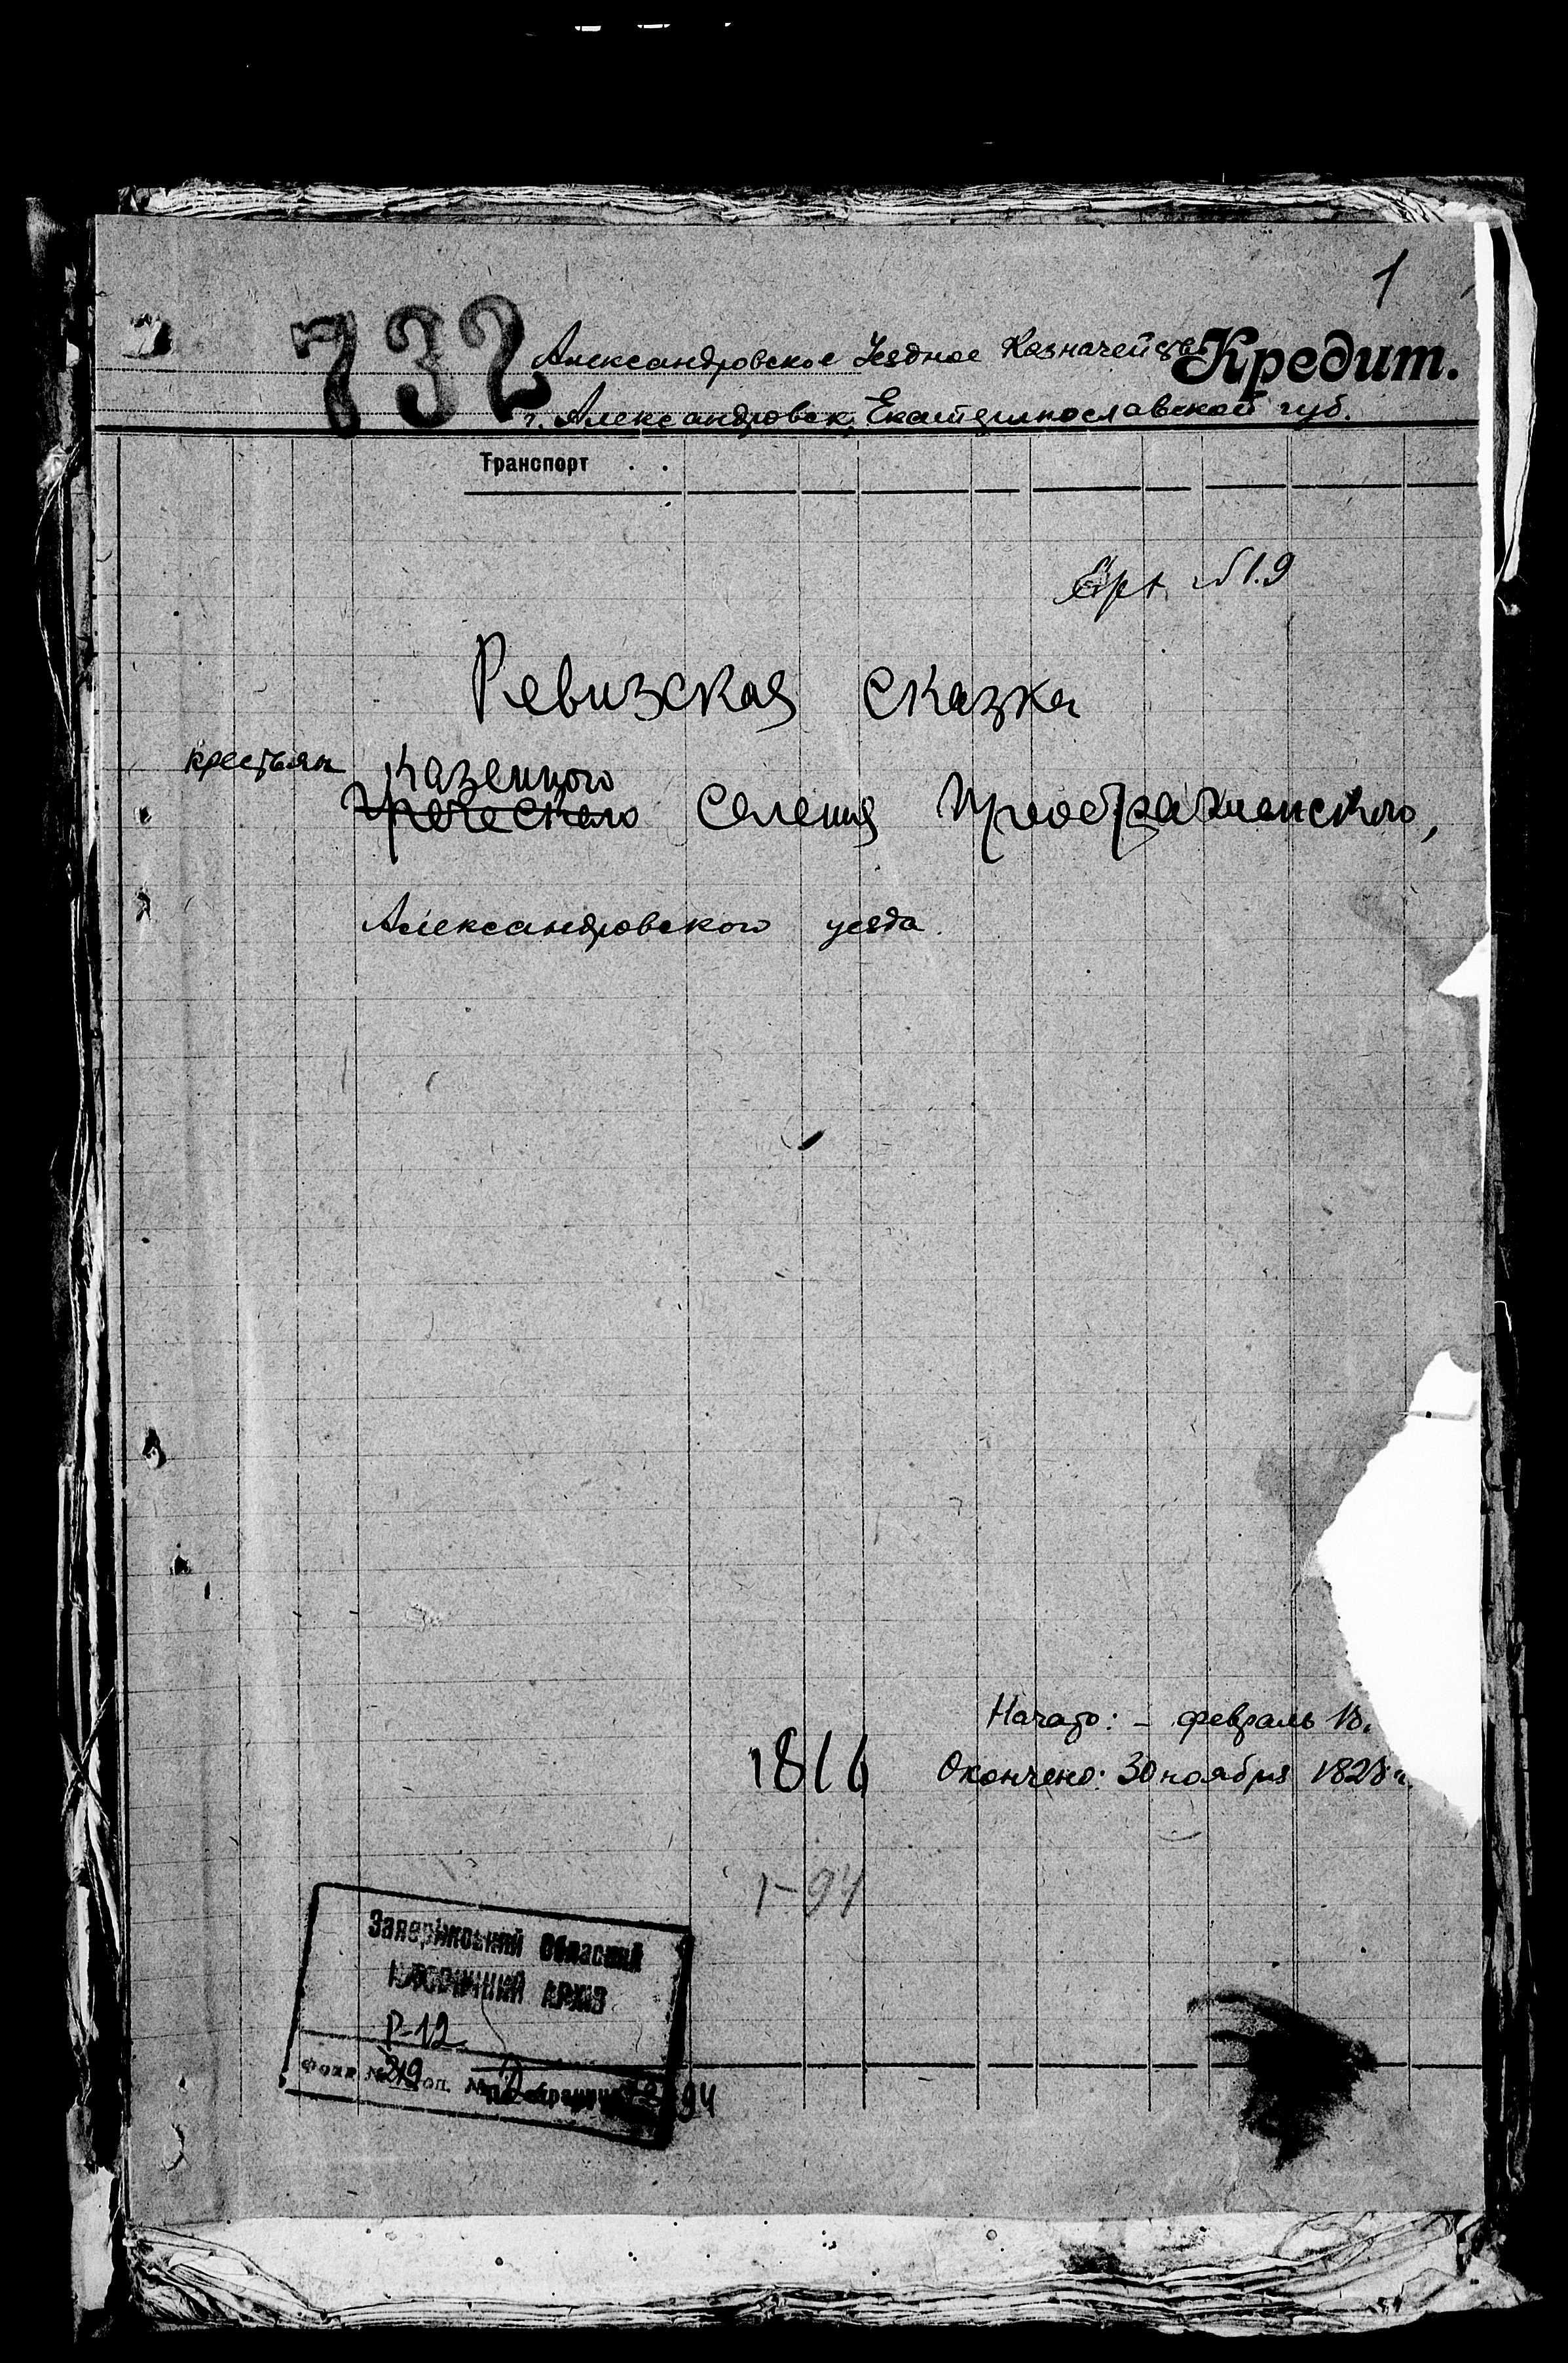 1
732
Александровское Уездное Казначейство
Кредит.
г. Александровск, Екатеринославской губ.
Транспорт . .
№ 1.9
Ревизская сказка
крестьян казенного
греческого селения Преображенского,
Александровского уезда.
Начато: – февраль 18
1816 Окончено: 30 ноября 1828 г.
1-94
Запоріжський Обласний
Історичний Архів
Р-12
Фонд № 219 оп. №
94